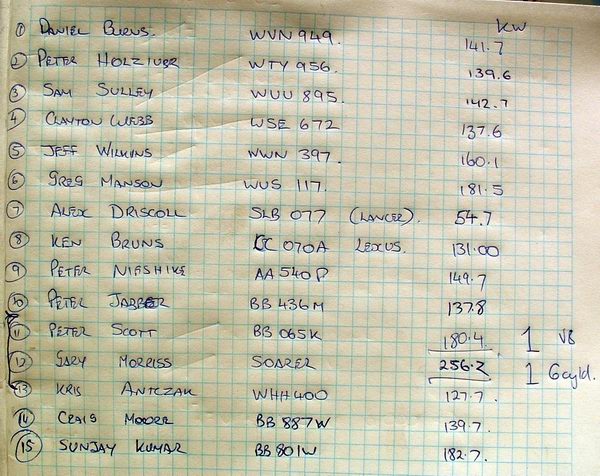 KW
① DANIEL BURNS. WVN 949. 141.7
② PETER HOLZIVER WTY 956. 139.6
③ SAM SULLEY WUU 895. 142.7
④ CLAYTON WEBB WSE 672 137.6
⑤ JEFF WILKINS NWN 397. 160.1
⑥ GREG MANSON WUS 117. 181.5
⑦ ALEX DRISCOLL SLB 077 (LANCER). 54.7
⑧ KEN BRUNS CC 070A LEXUS. 131.00
⑨ PETER AA 540P 149.7
⑩ PETER BB 436M 137.8
⑪ PETER SCOTT BB 065K 180.4. 1 V8
⑫ GARY MORRISS SOARER 256.2 1 6cyld.
⑬ KRIS ANTCZAK WHH400 127.7.
⑭ CRAIG MOORE BB 887W 139.7.
⑮ SUNJAY KUMAR BB 801W 182.7.